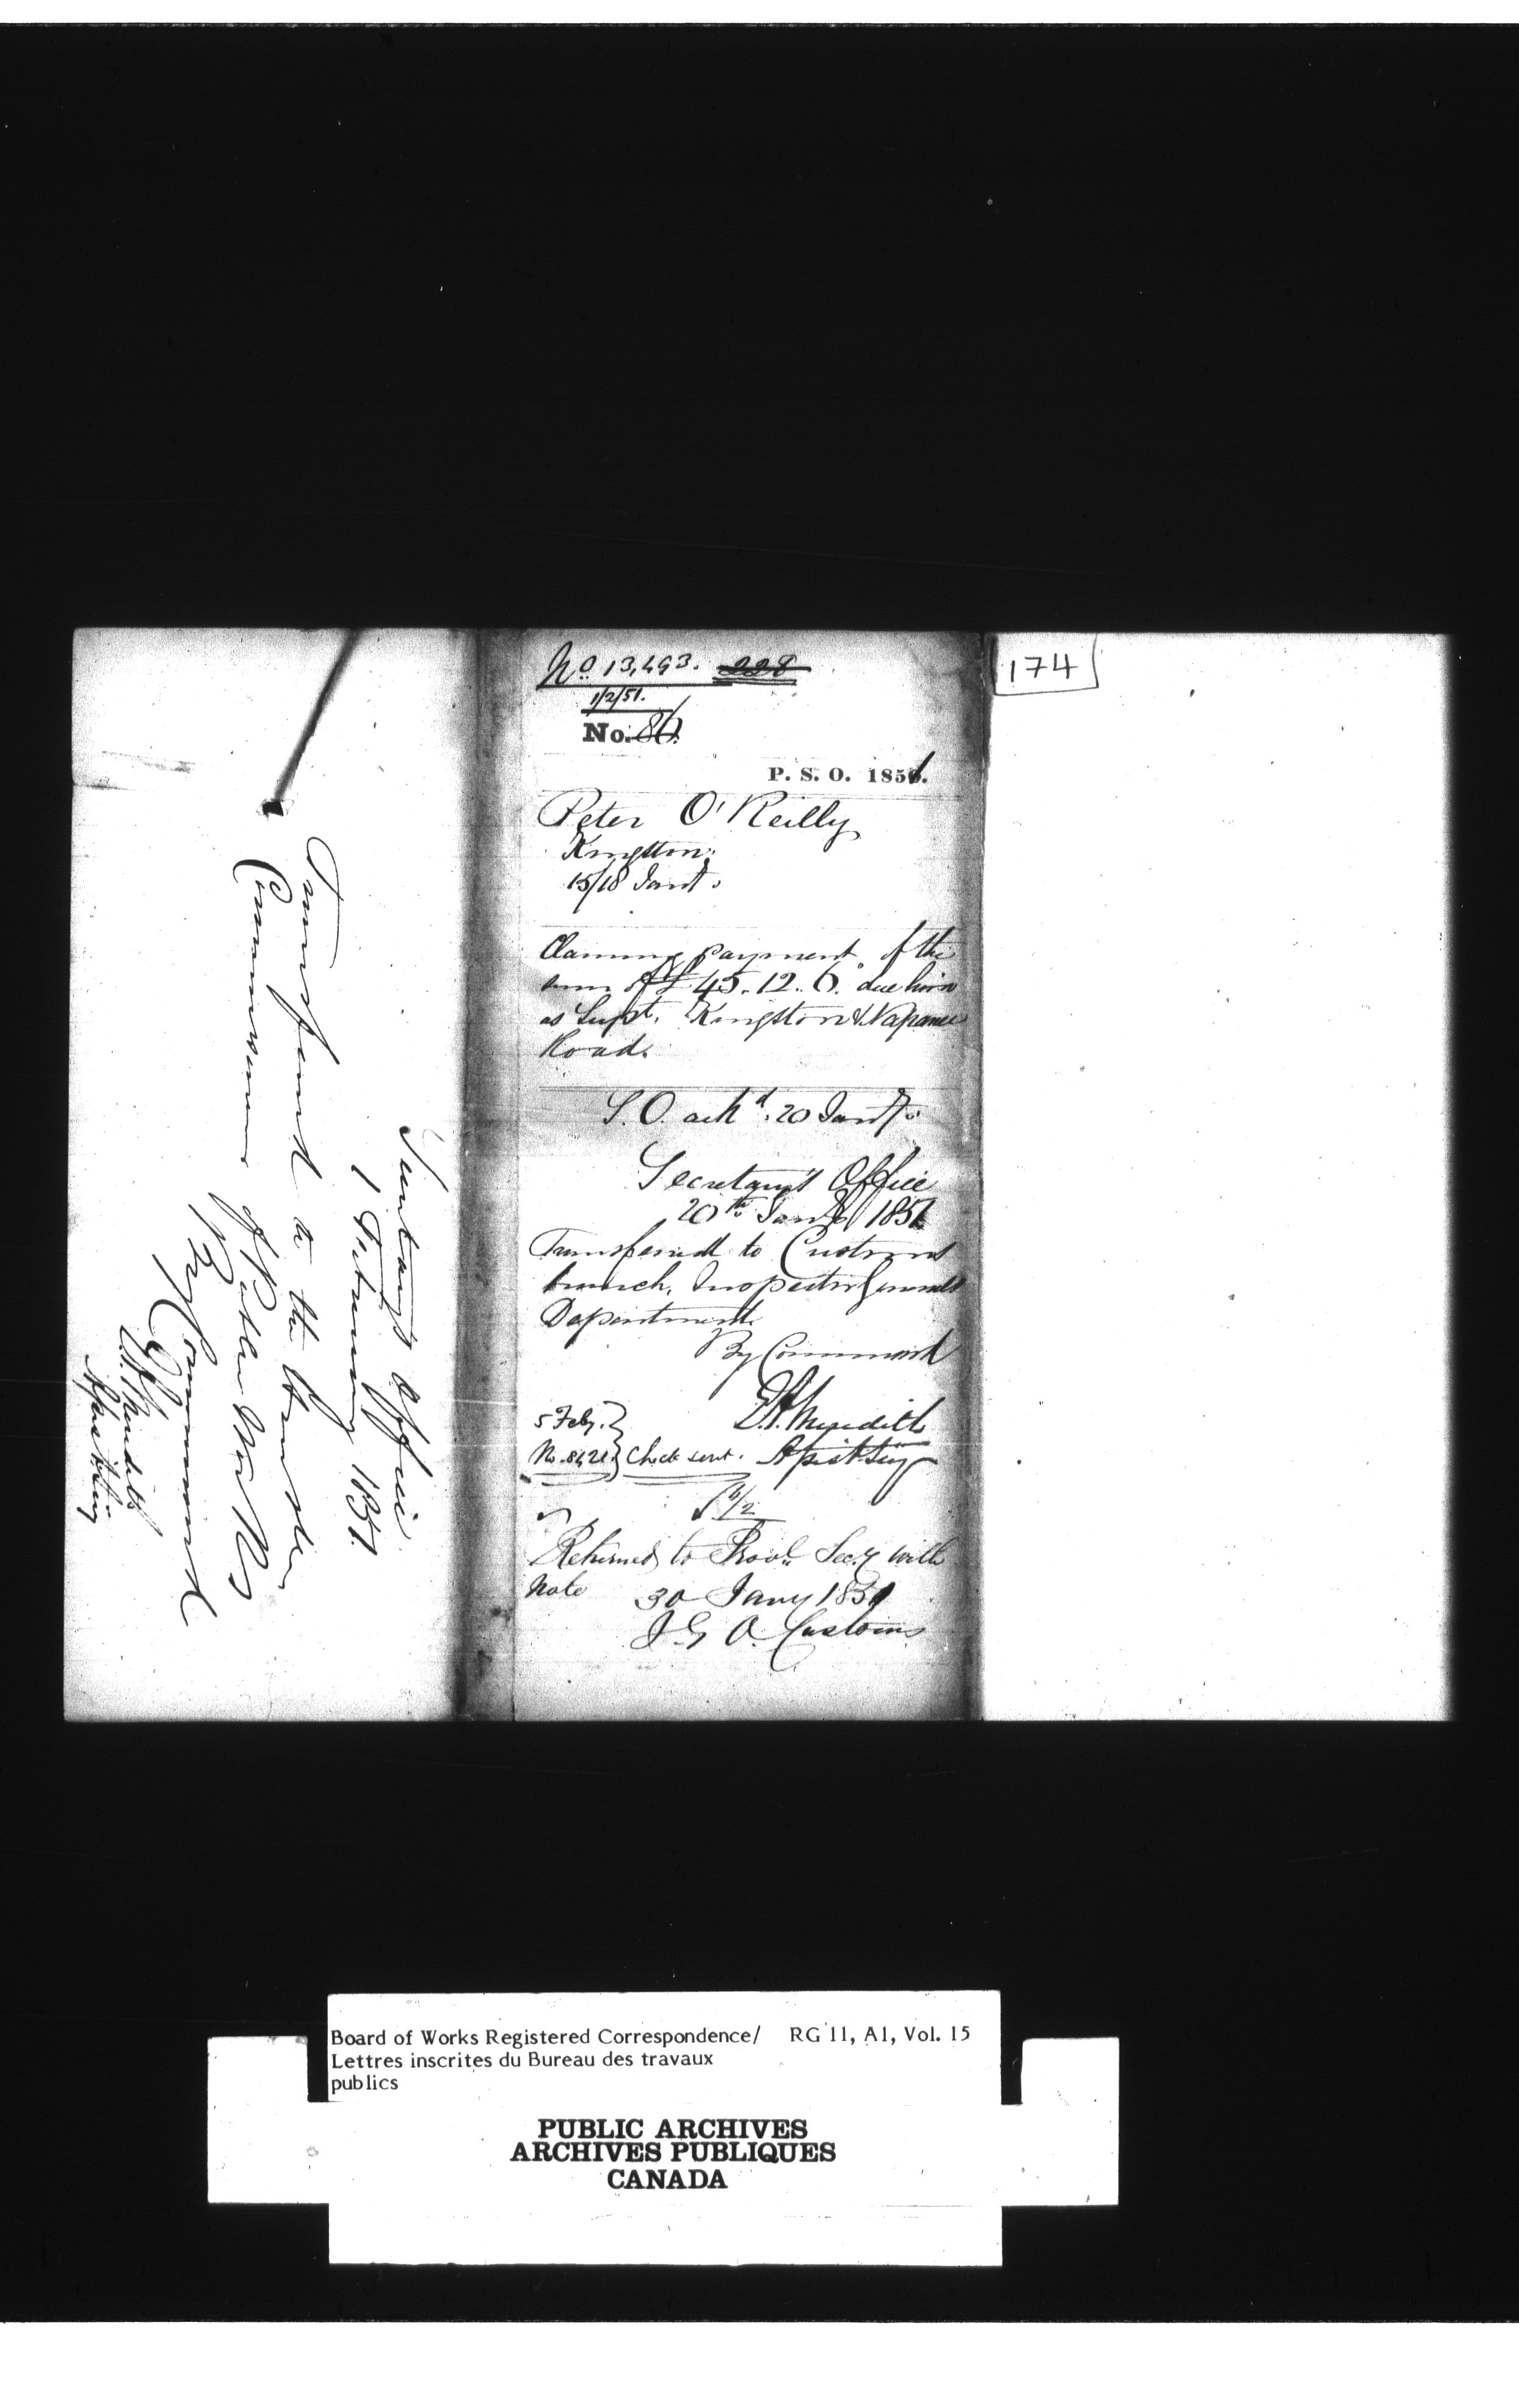 Secretary's Office
1 February 1851.
Transferred to the
Commissioners of Public Works
By Command
E.A. Meredith
Asst Secy
No. 13,493. 228
1/2/51.
No. 86.
P. S. O. 1851.
Peter O'Reilly
Kingston.
15/18 Jany.
Claiming payment of the
sum of £45.12.6. due him
as Supt. Kingston & Napanee
Road.
S.O. ackd. 20 Jany.
Secretary's Office
20th Jany 1851
Transferred to Customs
branch, Inspector Generals
Department.
By Command
E.A. Meredith
Asst Secy
5 Feby.
No. 8421 Check sent.
Returned to Provl. Secy with
note 30 Jany 1851
I.G.O. Customs
174
Board of Works Registered Correspondence/ RG 11, A1, Vol. 15
Lettres inscrites du Bureau des travaux
publics
PUBLIC ARCHIVES
ARCHIVES PUBLIQUES
CANADA